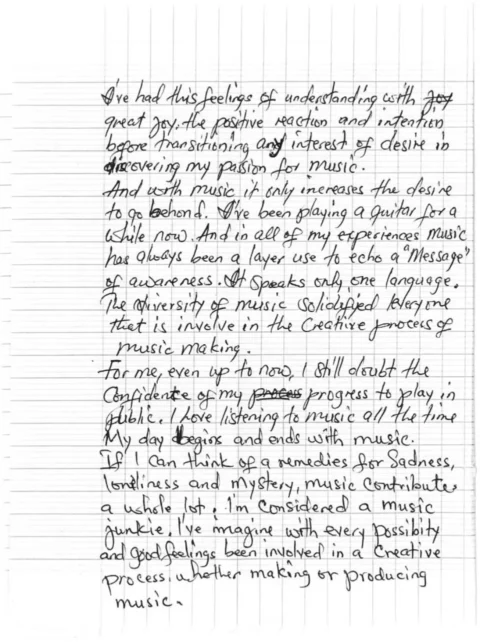 I've had this feelings of understanding with joy
great joy, the positive reaction and intention
before transitioning any interest of desire in
discovering my passion for music.
And with music it only increases the desire
to go behond. I've been playing a guitar for a
while now. And in all of my experiences music
has always been a layer use to echo a "Message"
of awareness. It speaks only one language.
The diversity of music solidified everyone
that is involve in the Creative process of
music making.
For me, even up to now, I still doubt the
Confidence of my process progress to play in
public. I Love listening to music all the time
My day begins and ends with music.
If I can think of a remedies for Sadness,
loneliness and mystery, music contributes
a whole lot. I'm considered a music
junkie. I've imagine with every possibity
and good feelings been involved in a Creative
process, whether making or producing
music.